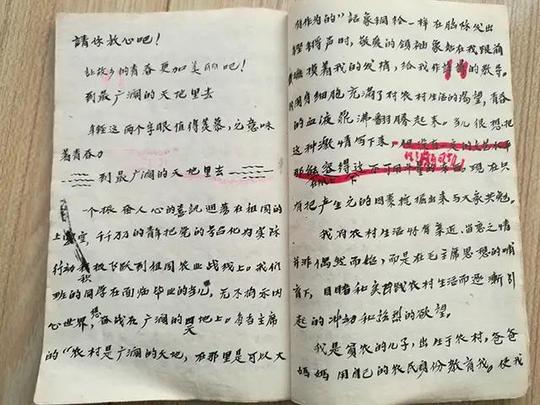 請你放心吧！
让故乡的青春更加美丽吧！
到最广濶的天地里去
年轻这两个字眼值得羡慕，它意味
着青春力
到最广濶的天地里去
一个振奋人心的喜訊迴荡在祖国的
上空，千万的青年把党的号召化为实际
行动积极下跃到祖国农业战线上。我们
班的同学在面临毕业的当儿，无不将永因
心世界，奋战在广濶的天地上。每当主席
的“农村是广濶的天地，在那里是可以大
有作为的”話象铜铃一样在脑际发出
声时，敬爱的領袖象站在我跟前
摸着我的发梢，给我作的教导。
我周身细胞充满了对农村生活的渴望，青春
的血液鼎沸翻腾起来。多么很想把
这种激情写下来。
现在只
有把产生它的因素挖掘出来与大家共勉。
我对农村生活特有亲近、留恋之情
并非偶然而始，而是在毛主席思想的哺
育下，目睹和实践农村生活而逐渐引
起的冲动和强烈的欲望。
我是貧农的儿子，出生于农村，爸爸
媽媽用自己的农民身份教育我，使我